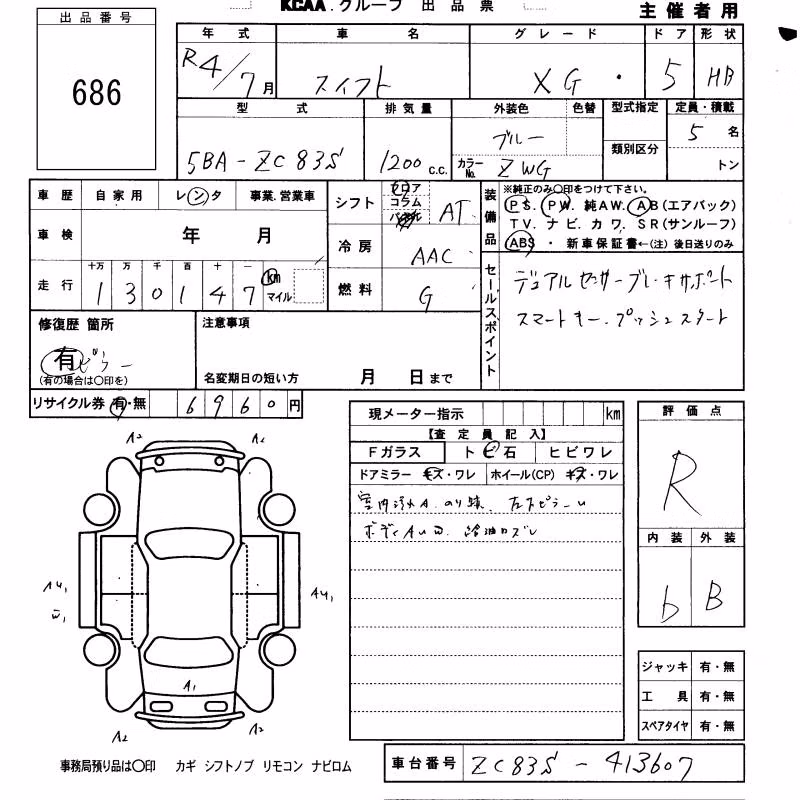 KCAA.グループ 出品票
主催者用
出品番号
686
年式 車名 グレード ドア 形状
R4/7月 スイフト XG・ 5 HB
型式 排気量 外装色 色替 型式指定 定員・積載
5BA-ZC83S 1200 c.c. ブルー 類別区分 5名
カラーNo. ZWG トン
車歴 自家用 レンタ 事業.営業車
車検 年 月
走行 十万 万 千 百 十 一 km マイル
1 3 0 1 4 7
シフト フロア コラム AT
冷房 AAC
燃料 G
装備品
※純正のみ○印をつけて下さい。
PS. PW. 純AW. AB(エアバック)
TV. ナビ. カワ. SR(サンルーフ)
ABS ・ 新車保証書←(注) 後日送りのみ
セールスポイント
デュアルセンサーブレーキサポート
スマートキー.プッシュスタート
修復歴 箇所
有 ピラー
(有の場合は○印を)
注意事項
名変期日の短い方 月 日まで
リサイクル券 有・無 6960円
現メーター指示 km
【査定員記入】
Fガラス ト ビ 石 ヒビワレ
ドアミラー キズ・ワレ ホイール(CP) キズ・ワレ
室内汚れA.のり跡. 左Bピラーu
ボディAuw.
評価点
R
内装 外装
b B
A2 A2
AU1 AU1
W1
A1
A2 A2
ジャッキ 有・無
工具 有・無
スペアタイヤ 有・無
事務局預り品は○印 カギ シフトノブ リモコン ナビロム
車台番号 ZC83S-413607